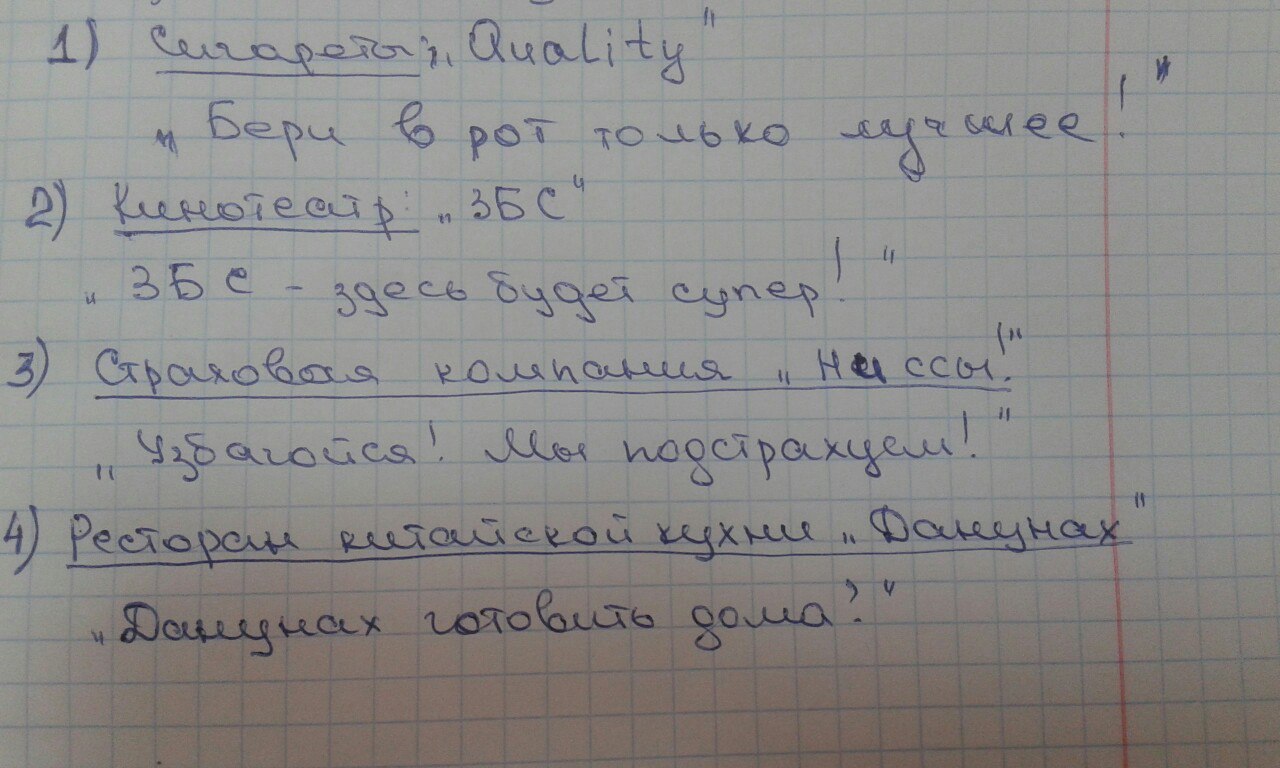 1) Сигареты: „Quality"
„Бери в рот только лучшее!"
2) Кинотеатр: „ЗБС"
„ЗБС – здесь будет супер!"
3) Страховая компания „Не ссы!"
„Узбагойся! Мы подстрахуем!"
4) Ресторан китайской кухни „Данунах"
„Данунах готовить дома?"